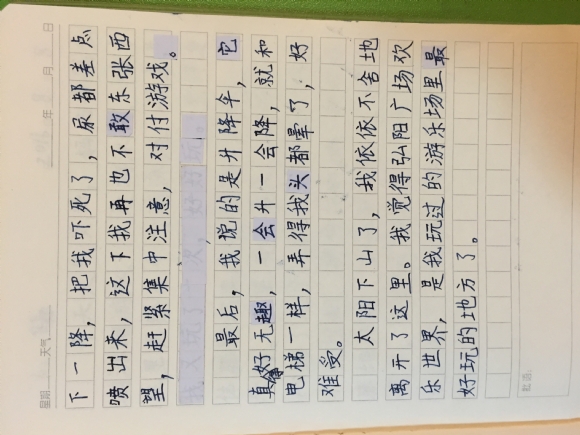 星期 天气 年 月 日
下一降，把我吓死了，尿都差点
喷出来，这下我再也不敢东张西
望，赶紧集中注意，对付游戏。
最后，我说的是升降伞，它
真好无趣，一会升一会降，就和
电梯一样，弄得我头都晕了，好
难受。
太阳下山了，我依依不舍地
离开了这里。我觉得弘阳广场欢
乐世界，是我玩过的游乐场里最
好玩的地方了。
批语：